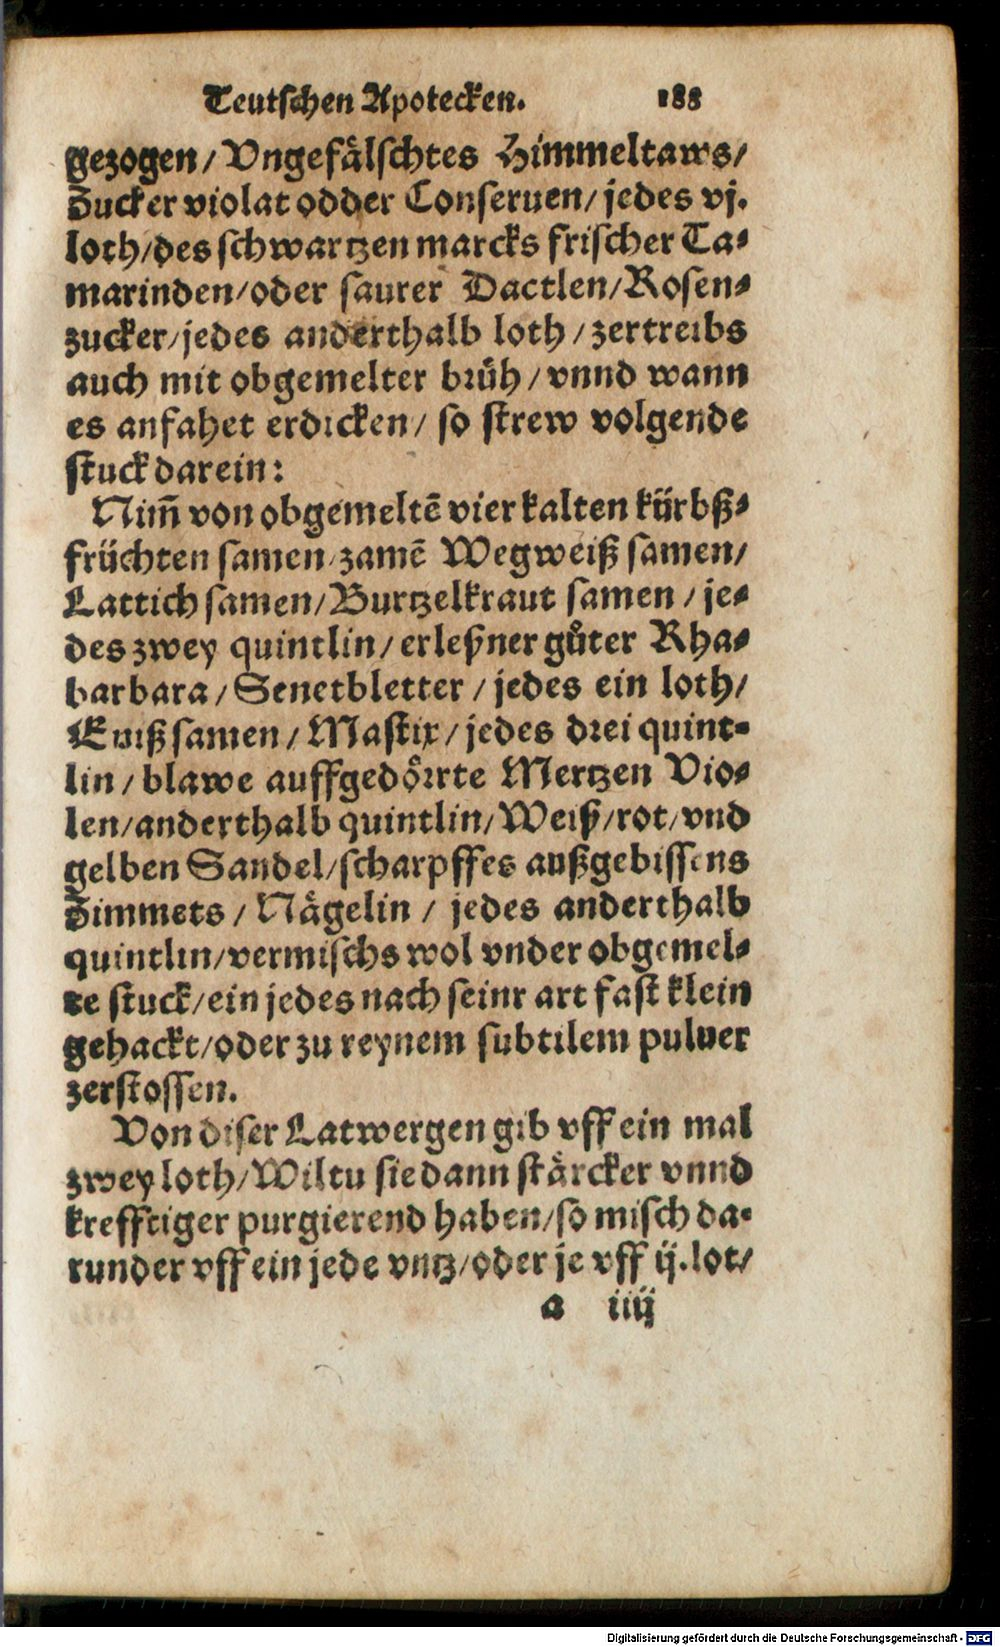 Teutschen Apotecken. 188
gezogen/ Vngefälschtes Himmeltaws/
Zucker violat odder Conseruen/ jedes vj.
loth/ des schwartzen marcks frischer Ta-
marinden/ oder saurer Dactlen/ Rosen-
zucker/ jedes anderthalb loth/ zertreibs
auch mit obgemelter brüh/ vnnd wann
es anfahet erdicken/ so strew volgende
stuck darein:
Nim̃ von obgemeltẽ vier kalten kürbß-
früchten samen/ zamẽ Wegweiß samen/
Lattich samen/ Burtzelkraut samen/ je-
des zwey quintlin/ erleßner gůter Rha-
barbara/ Senetbletter/ jedes ein loth/
Eniß samen/ Mastix/ jedes drei quint-
lin/ blawe auffgedörrte Mertzen Vio-
len/ anderthalb quintlin/ Weiß/ rot/ vnd
gelben Sandel/ scharpffes außgebissens
Zimmets/ Nägelin/ jedes anderthalb
quintlin/ vermischs wol vnder obgemel-
te stuck/ ein jedes nach seinr art fast klein
gehackt/ oder zu reynem subtilem puluer
zerstossen.
Von diser Latwergen gib vff ein mal
zwey loth/ Wiltu sie dann stärcker vnnd
krefftiger purgierend haben/ so misch da-
runder vff ein jede vntz/ oder je vff ij. lot/
a iiij
Digitalisierung gefördert durch die Deutsche Forschungsgemeinschaft - DFG